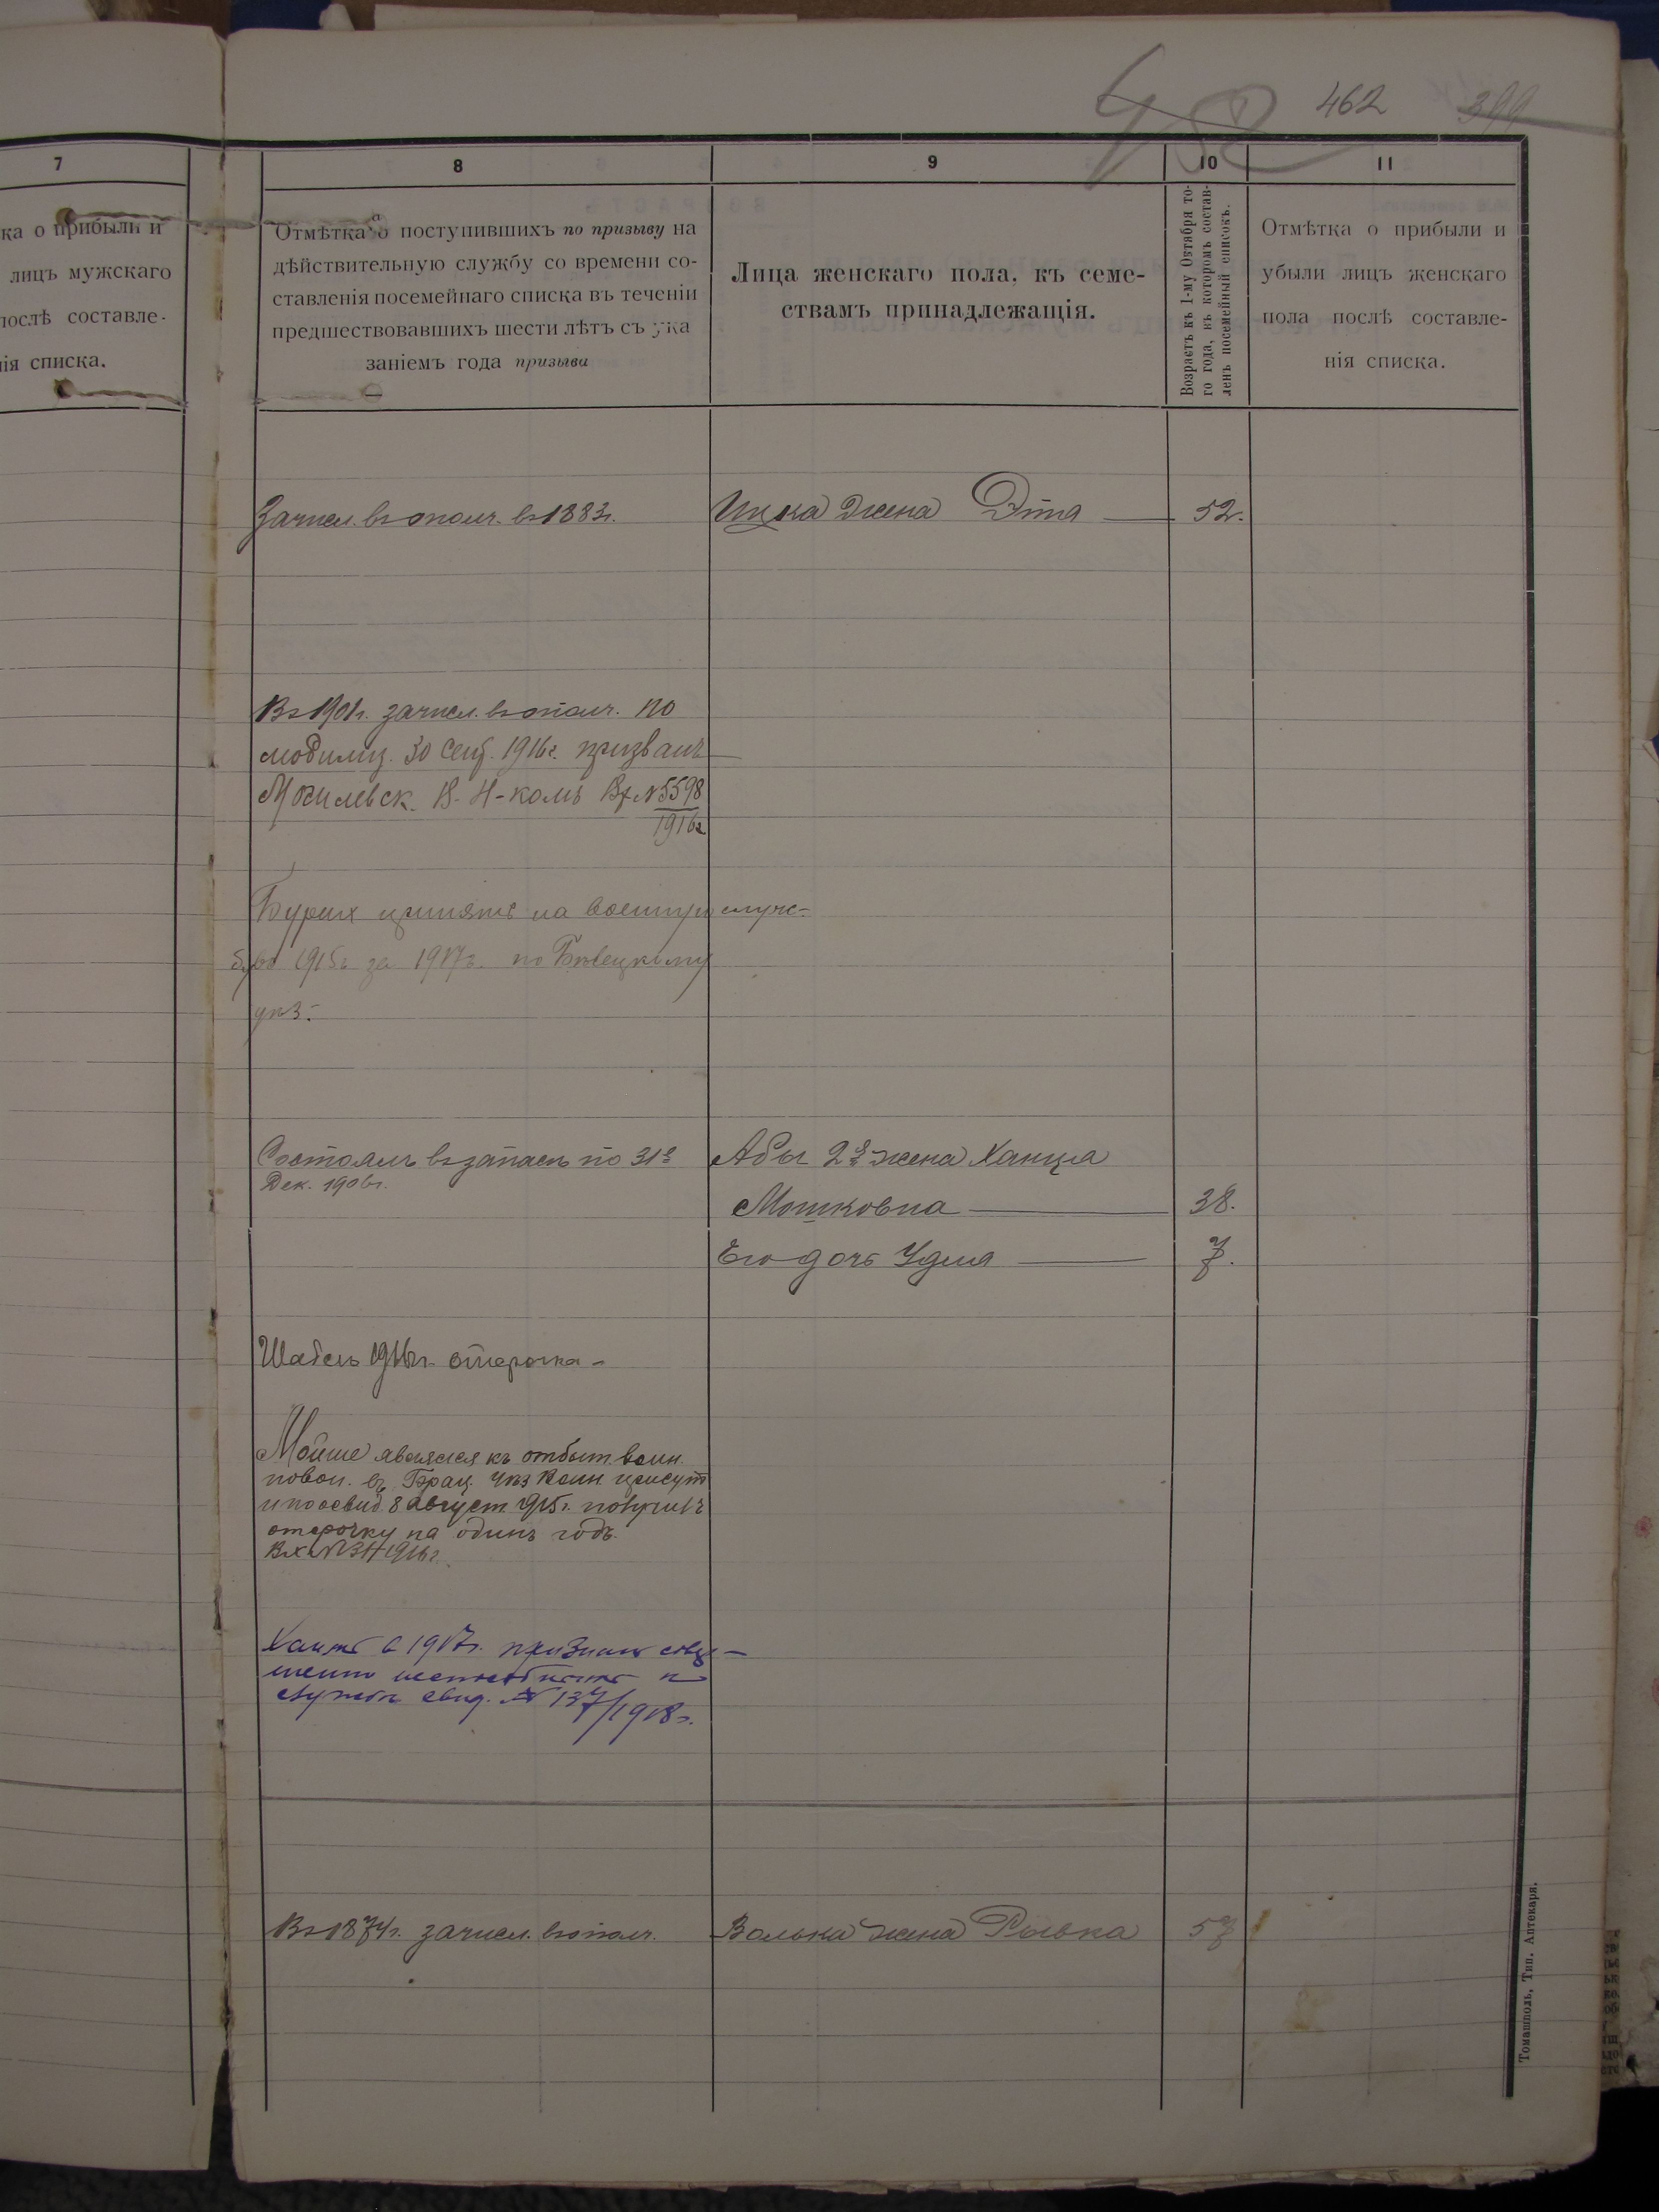 462 399
458
7
ка о прибыли и
лицъ мужскаго
послѣ составле-
нія списка.
8
Отмѣтка о поступившихъ по призыву на
дѣйствительную службу со времени со-
ставленія посемейнаго списка въ теченіи
предшествовавшихъ шести лѣтъ съ ука
заніемъ года призыва
9
Лица женскаго пола, къ семе-
ствамъ принадлежащія.
10
Возрастъ къ 1-му Октября то-
го года, въ которомъ состав-
ленъ посемейный списокъ.
11
Отмѣтка о прибыли и
убыли лицъ женскаго
пола послѣ составле-
нія списка.
Зачисл. въ ополч. въ 1883г.
Ицка жена Эта 52.
Въ 1901г. зачисл. въ ополч. по
мобилиз. 30 Сент. 1916г. призванъ
Могилевск. В. Н-комъ Вх №5598
1916г
принятъ на военную служ-
бу въ 1915г за 1917г. по
Состоялъ въ запасѣ по 31е
Дек. 1906г.
Абы 2я жена Ханца
Мошковна 38.
Его дочь Удля 7.
1916г. отсрочка
Мойше явился къ отбыт. воин.
повин. въ Брац. уѣз воин. присут
и по освид. 8 Август. 1915г. получилъ
отсрочку на одинъ годъ.
1916г.
1917г. признанъ совер-
шенно къ
службѣ свид. № 137/1918г.
Въ 1874г. зачисл. въ ополч.
Волька жена Рывка 57
Томашполь, Тип. Аптекаря.